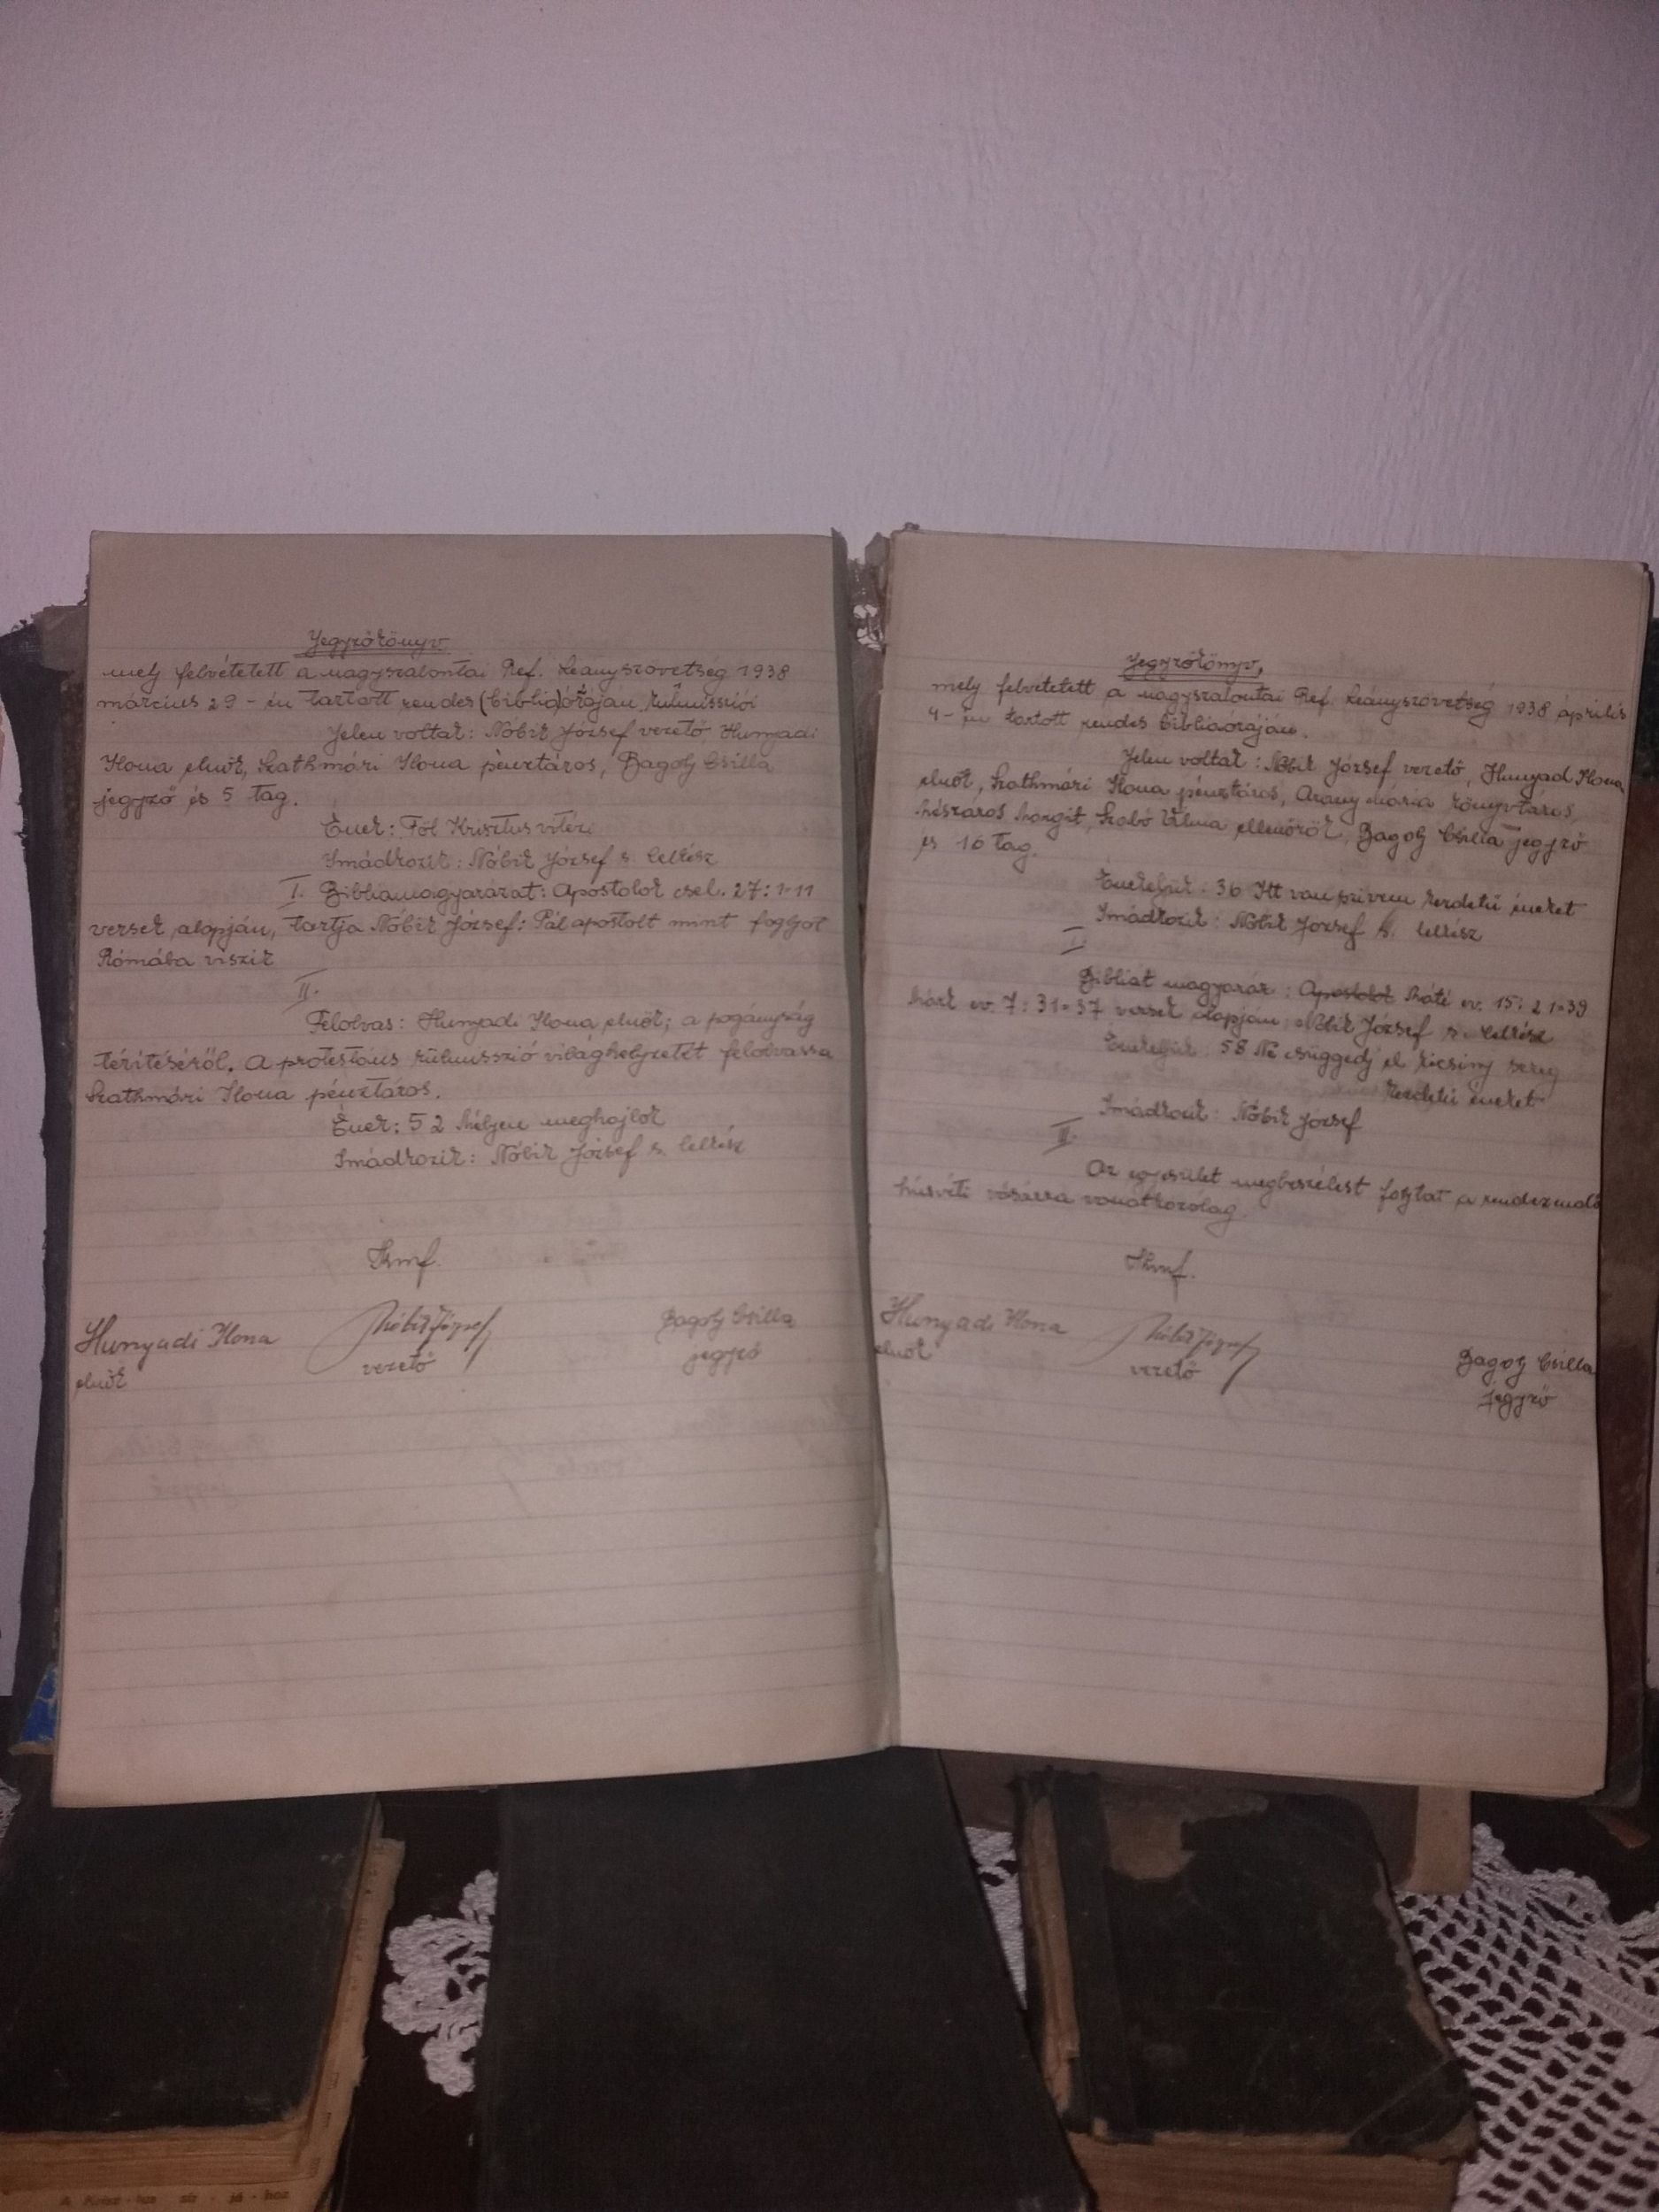 Jegyzőkönyv
mely felvétetett a nagyszalontai Ref. Leányszövetség 1938
március 29-én tartott rendes (biblia)óráján, külmissziói
Jelen voltak: Nóbik József vezető, Hunyadi
Ilona elnök, Szathmári Ilona pénztáros, Bagoly Csilla
jegyző és 5 tag.
Ének: Föl Krisztus vitézi
Imádkozik: Nóbik József s. lelkész
I. Bibliamagyarázat: Apostolok csel. 27:1-11
versek alapján, tartja Nóbik József: Pál apostolt mint foglyot
Rómába viszik
II.
Felolvas: Hunyadi Ilona elnök; a pogányság
térítéséről. A protestáns külmisszió világhelyzetét felolvassa
Szathmári Ilona pénztáros.
Ének: 52 Mélyen meghajlok
Imádkozik: Nóbik József s. lelkész
Kmf.
Hunyadi Ilona
elnök
Nóbik József
vezető
Bagoly Csilla
jegyző
Jegyzőkönyv,
mely felvétetett a nagyszalontai Ref. Leányszövetség 1938 április
4-én tartott rendes bibliaóráján.
Jelen voltak: Nóbik József vezető, Hunyad Ilona
elnök, Szathmári Ilona pénztáros, Arany Mária könyvtáros,
Mészáros Margit, Szabó Vilma ellenőrök, Bagoly Csilla jegyző
és 16 tag.
Énekeljük: 36 Itt van szívem kezdetű éneket
Imádkozik: Nóbik József s. lelkész
I.
Bibliát magyaráz: Apostolok Máté ev. 15:21-39
Márk ev. 7:31-37 versek alapján Nóbik József s. lelkész
Énekeljük: 58 Ne csüggedj el kicsiny sereg
kezdetű éneket
Imádkozik: Nóbik József
II.
Az egyesület megbeszélést folytat a rendezendő
húsvéti vásárra vonatkozólag.
Kmf.
Hunyadi Ilona
elnök
Nóbik József
vezető
Bagoly Csilla
jegyző
A Krisz-tus sír-já-hoz